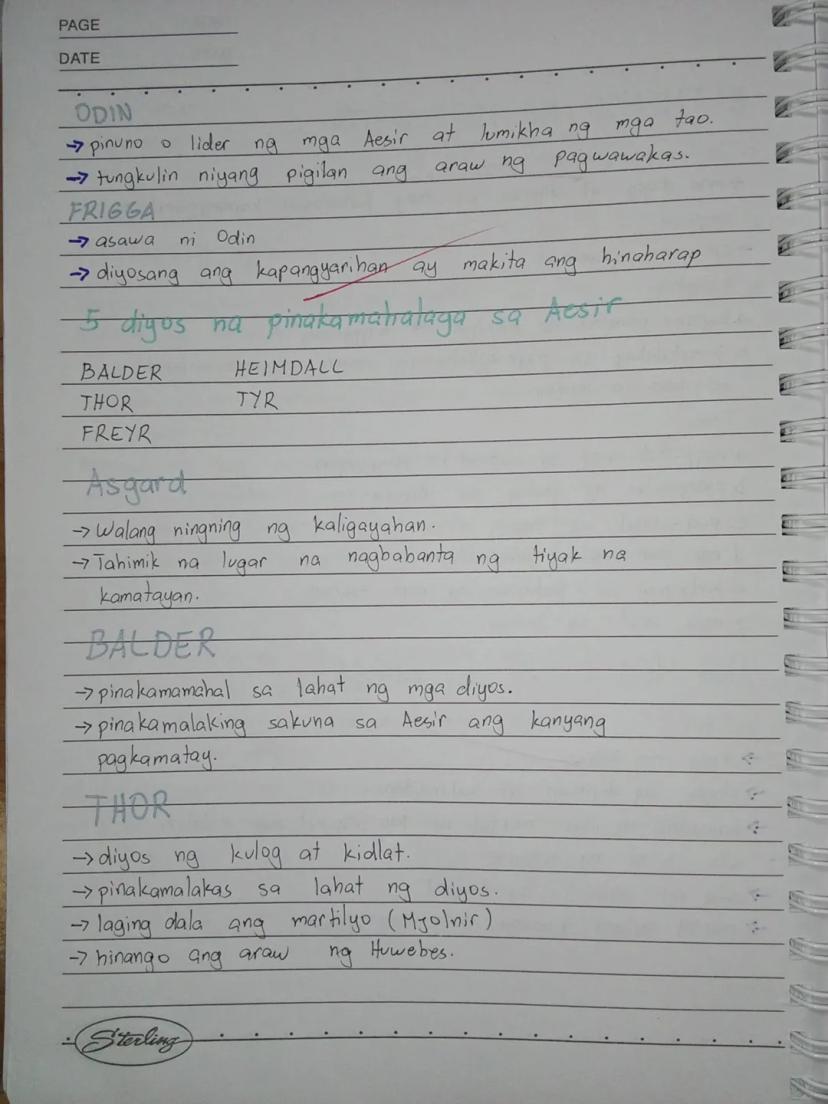 PAGE
DATE
ODIN
→ pinuno o lider ng mga Aesir at lumikha ng mga tao.
→ tungkulin niyang pigilan ang araw ng pagwawakas.
FRIGGA
→ asawa ni Odin
→ diyosang ang kapangyarihan ay makita ang hinaharap
5 diyos na pinakamahalaga sa Aesir
BALDER HEIMDALL
THOR TYR
FREYR
Asgard
→ Walang ningning ng kaligayahan.
→ Tahimik na lugar na nagbabanta ng tiyak na
kamatayan.
BALDER
→ pinakamamahal sa lahat ng mga diyos.
→ pinakamalaking sakuna sa Aesir ang kanyang
pagkamatay.
THOR
→ diyos ng kulog at kidlat.
→ pinakamalakas sa lahat ng diyos.
→ laging dala ang martilyo (Mjolnir)
→ hinango ang araw ng Huwebes.
Sterling